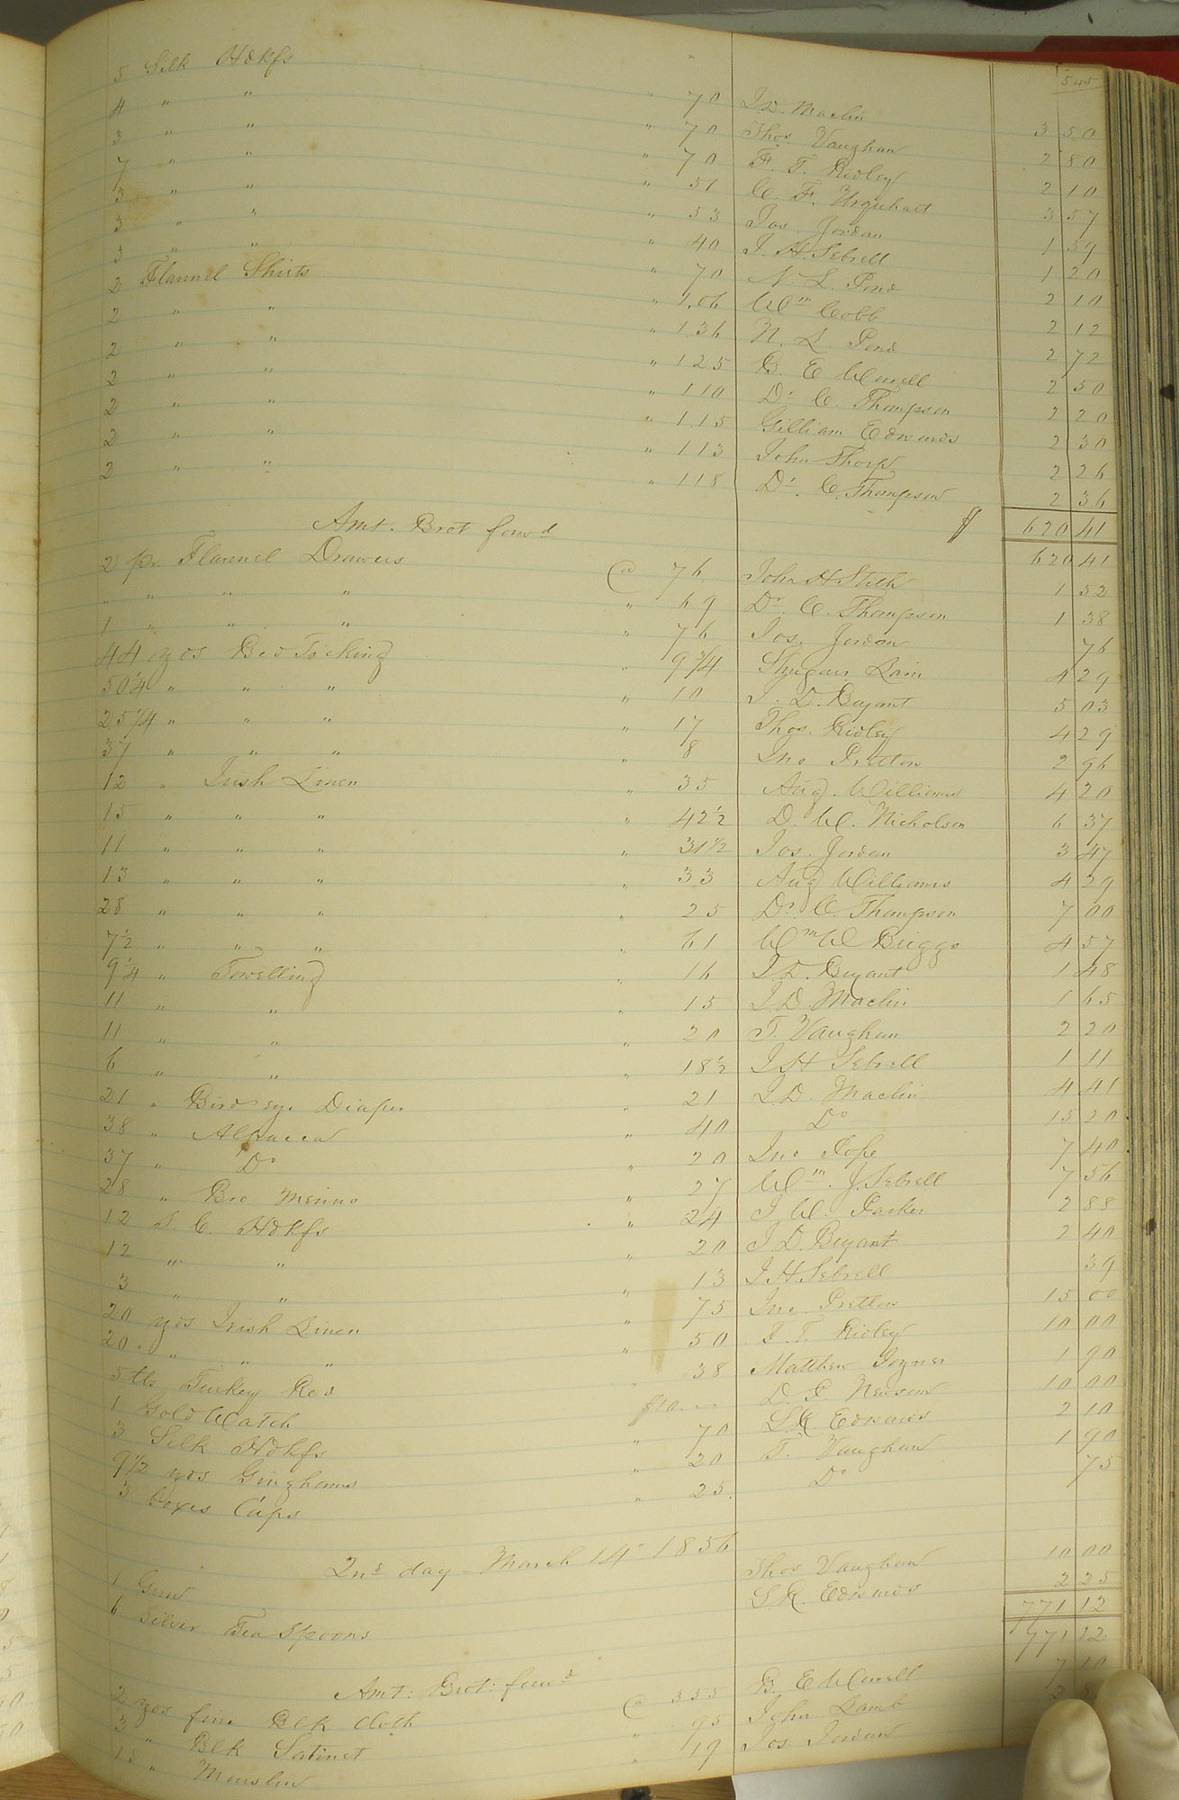 545
5 Silk Hdkfs " 70 J. D. Maclin 3 50
4 " " " 70 Thos. Vaughan 2 80
3 " " " 70 F. T. Ridley 2 10
7 " " " 51 C. F. Urquhart 3 57
3 " " " 53 Jos. Jordan 1 59
3 " " " 40 J. H. Sebrell 1 20
3 " " " 70 N. L. Pond 2 10
2 Flannel Shirts " 1.06 Wm Cobb 2 12
2 " " " 136 N. L. Pond 2 72
2 " " " 125 B. E. 2 50
2 " " " 110 Dr. C. Thompson 2 20
2 " " " 115 Gilliam Edwards 2 30
2 " " " 113 John Thorp 2 26
2 " " " 118 Dr. C. Thompson 2 36
620 41
Amt. Brot forwd 620 41
2 pr Flannel Drawers @ 76 John H Stith 1 52
" " " " " 69 Dr. C. Thompson 1 38
1 " " " " 76 Jos. Jordan 76
44 yds Bed Ticking " 9 3/4 Lain 4 29
50 1/4 " " " " 10 J. D. Bryant 5 03
25 1/4 " " " " 17 Thos. Ridley 4 29
37 " " " " 8 Jno Pretlow 2 96
12 " Irish Linen " 35 Aug. Williams 4 20
15 " " " " 42 1/2 D. W. Nicholson 6 37
11 " " " " 31 1/2 Jos. Jordan 3 47
13 " " " " 33 Aug Williams 4 29
28 " " " " 25 Dr C. Thompson 7 00
7 1/2 " " " " 61 Wm W Briggs 4 57
9 1/4 " Towelling " 16 J. D. Bryant 1 48
11 " " " 15 J. D. Maclin 1 65
11 " " " 20 T. Vaughan 2 20
6 " " " 18 1/2 J H Sebrell 1 11
21 " Birds eye Diaper " 21 J. D. Maclin 4 41
38 " Alpacca " 40 Do 15 20
37 " Do " 20 Jno Pope 7 40
28 " Bro Merino " 27 Wm. J. Sebrell 7 56
12 L. C. Hdkfs " 24 J W. Parker 2 88
12 " " " 20 J. D. Bryant 2 40
3 " " " 13 J. H Sebrell 39
20 yds Irish Linen " 75 Jno Pretlow 15 00
20 " " " " 50 F. T. Ridley 10 00
5 lbs Turkey Red 38 Matthew Joyner 1 90
1 Gold Watch $10 D. P. Newsom 10 00
3 Silk Hdkfs " 70 L. R. Edwards 2 10
9 1/2 yds Ginghams " 20 T. Vaughan 1 90
3 boxes Caps " 25. Do 75
2nd day - March 14" 1856
1 Gun Thos Vaughan 10 00
6 Silver Tea Spoons L R. Edwards 2 25
771 12
Amt: Brot: forwd 771 12
2 yds fine Blk Cloth @ 355 B. E. 7 10
3 " Blk Satinet " 95 John Lamb
" Muslin " 19 Jos Jordan